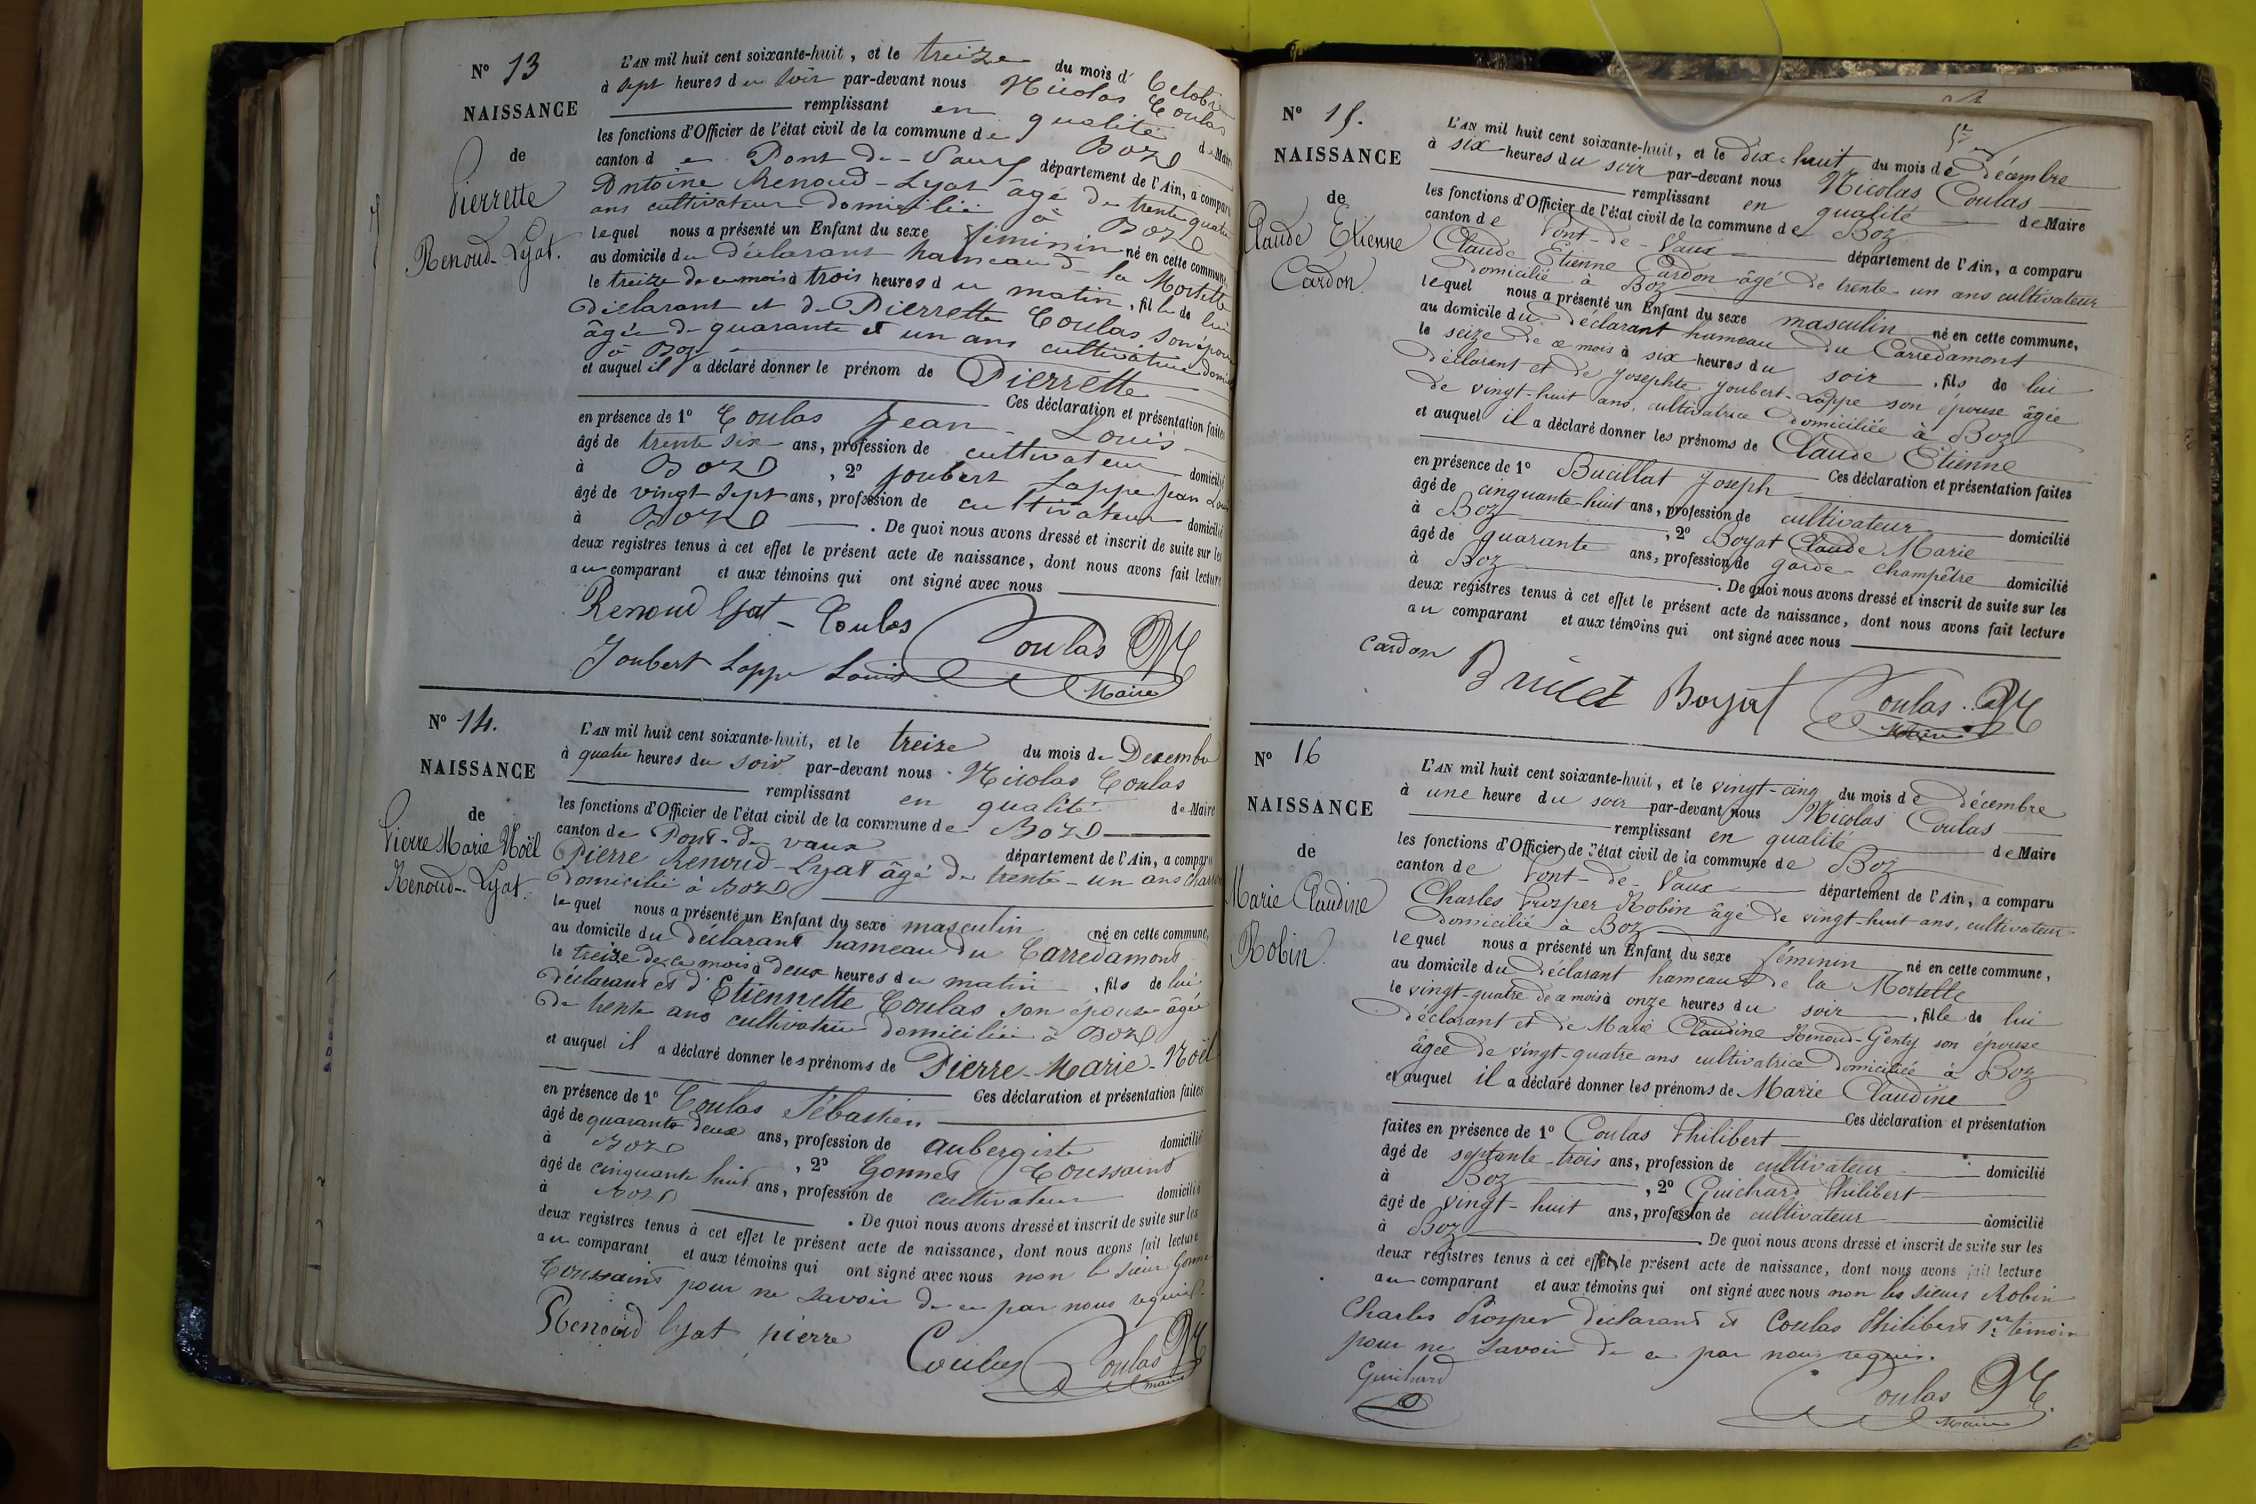 Nº 13
NAISSANCE
de
Pierrette
Renoud-Lyat.
L'AN mil huit cent soixante-huit, et le treize du mois d' Octobre
à sept heures du soir par-devant nous Nicolas Coulas
remplissant en qualité de Maire
les fonctions d'Officier de l'état civil de la commune de Boz
canton de Pont-de-Vaux département de l'Ain, a comparu
Antoine Renoud-Lyat âgé de trente quatre
ans cultivateur domicilié à Boz
lequel nous a présenté un Enfant du sexe féminin né en cette commune,
au domicile du déclarant hameau de la Mortelle
le treize de ce mois à trois heures du matin, fille de lui
déclarant et de Pierrette Coulas son épouse
âgée de quarante et un ans cultivatrice domiciliée
à Boz
et auquel il a déclaré donner le prénom de Pierrette
Ces déclaration et présentation faites
en présence de 1º Coulas Jean-Louis
âgé de trente six ans, profession de cultivateur domicilié
à Boz, 2º Joubert Lappe Jean Louis
âgé de vingt sept ans, profession de cultivateur domicilié
à Boz. De quoi nous avons dressé et inscrit de suite sur les
deux registres tenus à cet effet le présent acte de naissance, dont nous avons fait lecture
au comparant et aux témoins qui ont signé avec nous
Renoud Lyat - Coulas Coulas N
Joubert Lappe Louis Maire
Nº 14.
NAISSANCE
de
Pierre Marie Noël
Renoud-Lyat.
L'AN mil huit cent soixante-huit, et le treize du mois de Decembre
à quatre heures du soir par-devant nous Nicolas Coulas
remplissant en qualité de Maire
les fonctions d'Officier de l'état civil de la commune de Boz
canton de Pont-de-vaux département de l'Ain, a comparu
Pierre Renoud-Lyat âgé de trente-un ans charron
domicilié à Boz
lequel nous a présenté un Enfant du sexe masculin né en cette commune,
au domicile du déclarant hameau du Carredamont
le treize de ce mois à deux heures du matin, fils de lui
déclarant et d'Etiennette Coulas son épouse âgée
de trente ans cultivatrice domiciliée à Boz
et auquel il a déclaré donner les prénoms de Pierre-Marie-Noël
Ces déclaration et présentation faites
en présence de 1º Coulas Sébastien
âgé de quarante deux ans, profession de aubergiste domicilié
à Boz, 2º Gonnet Toussaint
âgé de cinquante huit ans, profession de cultivateur domicilié
à Boz. De quoi nous avons dressé et inscrit de suite sur les
deux registres tenus à cet effet le présent acte de naissance, dont nous avons fait lecture
au comparant et aux témoins qui ont signé avec nous non le sieur Gonnet
Toussaint pour ne savoir de ce par nous requis.
Renoud lyat pierre Coulas Coulas N
maire
Nº 15.
NAISSANCE
de
Claude Etienne
Cardon.
L'AN mil huit cent soixante-huit, et le dix-huit du mois de décembre
à six heures du soir par-devant nous Nicolas Coulas
remplissant en qualité de Maire
les fonctions d'Officier de l'état civil de la commune de Boz
canton de Pont-de-Vaux département de l'Ain, a comparu
Claude Etienne Cardon âgé de trente un ans cultivateur
domicilié à Boz
lequel nous a présenté un Enfant du sexe masculin né en cette commune,
au domicile du déclarant hameau du Carredamont
le seize de ce mois à six heures du soir, fils de lui
déclarant et de Josephte Joubert-Lappe son épouse âgée
de vingt-huit ans, cultivatrice domiciliée à Boz
et auquel il a déclaré donner les prénoms de Claude Etienne
Ces déclaration et présentation faites
en présence de 1º Bucillat Joseph
âgé de cinquante-huit ans, profession de cultivateur domicilié
à Boz, 2º Boyat Claude Marie
âgé de quarante ans, profession de garde-champêtre domicilié
à Boz. De quoi nous avons dressé et inscrit de suite sur les
deux registres tenus à cet effet le présent acte de naissance, dont nous avons fait lecture
au comparant et aux témoins qui ont signé avec nous
cardon Boyat Coulas N
Maire
Nº 16
NAISSANCE
de
Marie Claudine
Robin.
L'AN mil huit cent soixante-huit, et le vingt-cinq du mois de décembre
à une heure du soir par-devant nous Nicolas Coulas
remplissant en qualité de Maire
les fonctions d'Officier de l'état civil de la commune de Boz
canton de Pont-de-Vaux département de l'Ain, a comparu
Charles Prosper Robin âgé de vingt-huit ans, cultivateur
domicilié à Boz
lequel nous a présenté un Enfant du sexe féminin né en cette commune,
au domicile du déclarant hameau de la Mortelle
le vingt-quatre de ce mois à onze heures du soir, fille de lui
déclarant et de Marie Claudine Renoud-Genty son épouse
âgée de vingt-quatre ans cultivatrice domiciliée à Boz
et auquel il a déclaré donner les prénoms de Marie Claudine
Ces déclaration et présentation
faites en présence de 1º Coulas Philibert
âgé de septante-trois ans, profession de cultivateur domicilié
à Boz, 2º Guichard Philibert
âgé de vingt-huit ans, profession de cultivateur domicilié
à Boz. De quoi nous avons dressé et inscrit de suite sur les
deux registres tenus à cet effet le présent acte de naissance, dont nous avons fait lecture
au comparant et aux témoins qui ont signé avec nous non les sieurs Robin
Charles Prosper déclarant et Coulas Philibert 1er témoin
pour ne savoir de ce par nous requis.
Guichard Coulas N
Maire